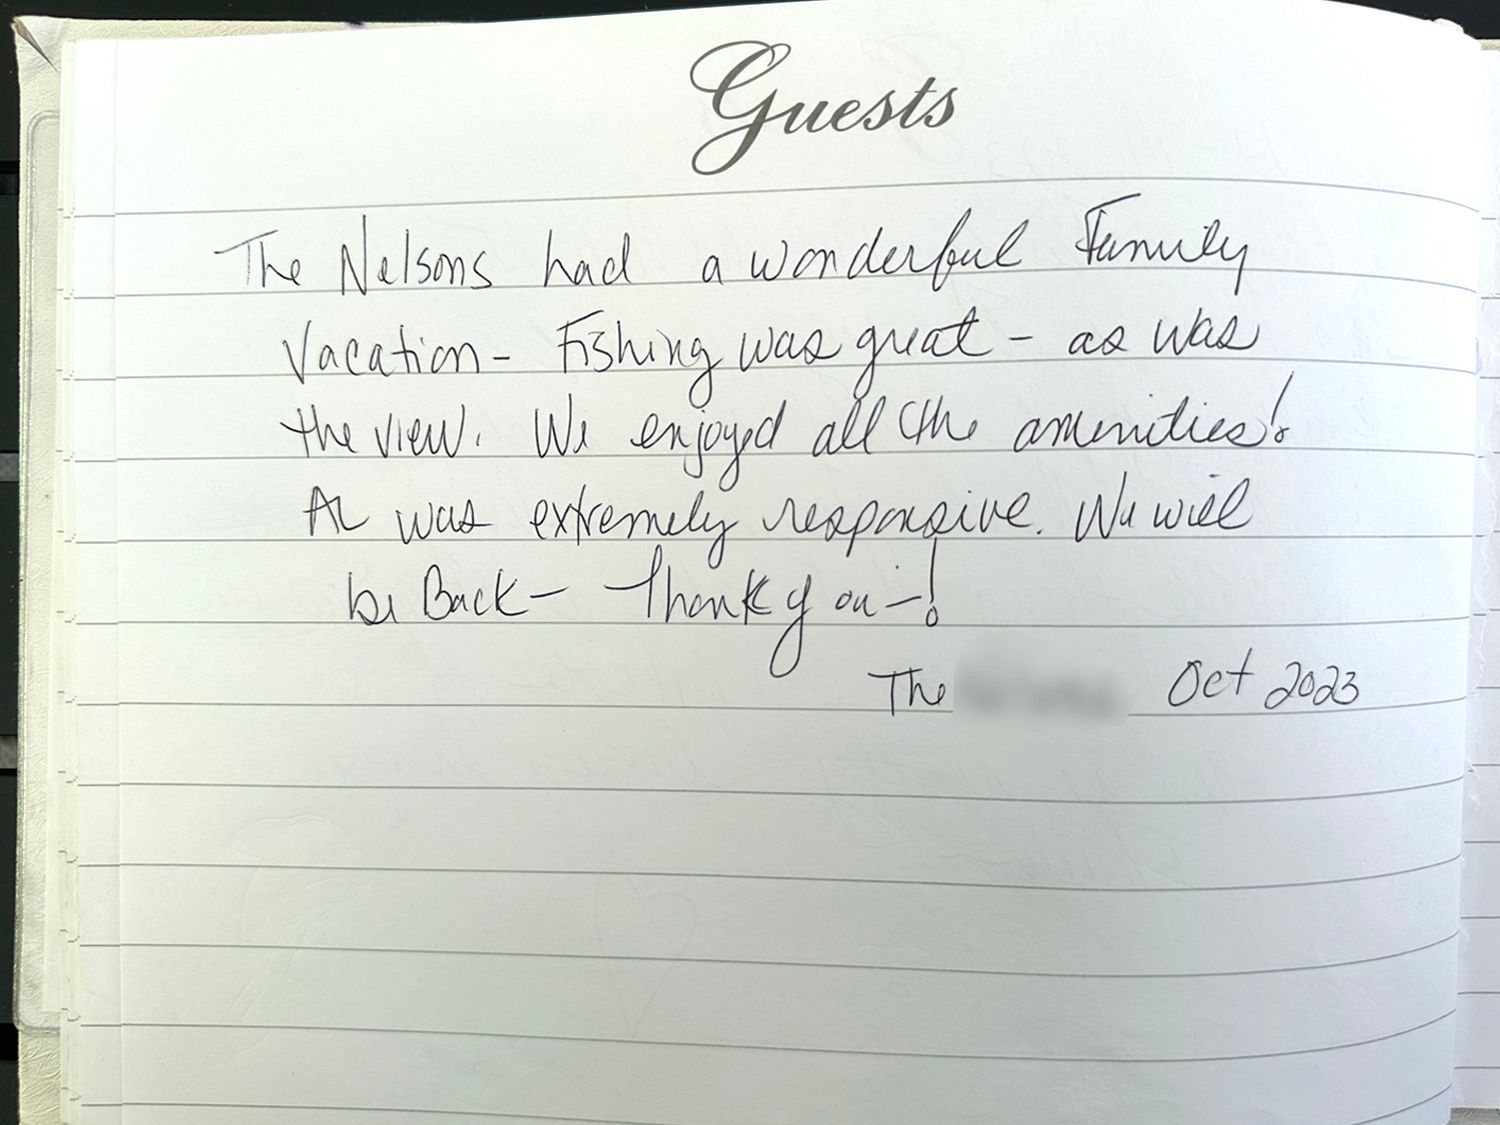 Guests
The Nelsons had a wonderful Family
Vacation - Fishing was great - as was
the view. We enjoyed all the amenities!
AL was extremely responsive. We will
be Back - Thank you - !
The Oct 2023